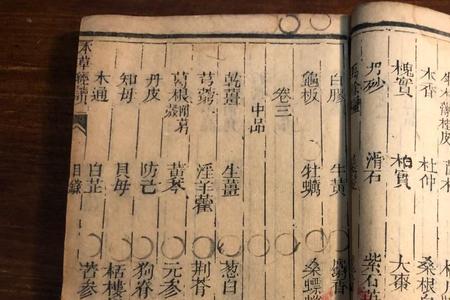 木香 杜仲 桑根
槐實 柏實 大棗
丹砂 滑石 紫石
白膠 牛黃 麝香
龜板 牡蠣 桑螵
卷三
中品
乾薑 生薑 葱白
芎藭 淫羊藿 荊芥
葛根 黃芩 元參
丹皮 防己 狗脊
知母 貝母 栝樓
木通 白芷 苦參
本草經讀 目錄